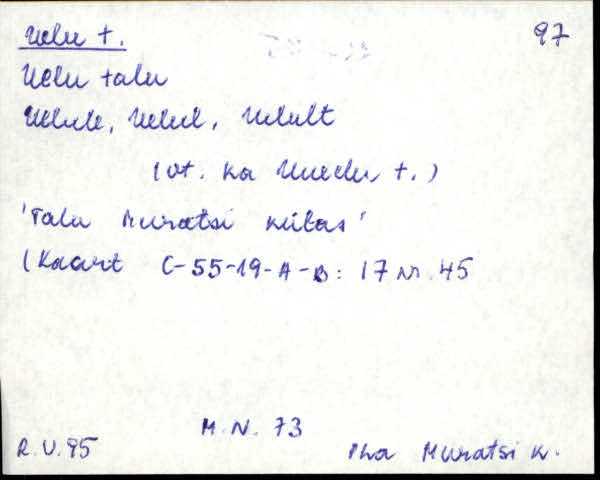 Uelu t. 97
Uelu talu
Uelule, Uelul, Uelult
(vt. ka Uuelu t.)
'Talu Muratsi külas'
(Kaart C-55-19-A-B: 17 nr. 45
M.N. 73
R.V. 95 Pha Muratsi k.